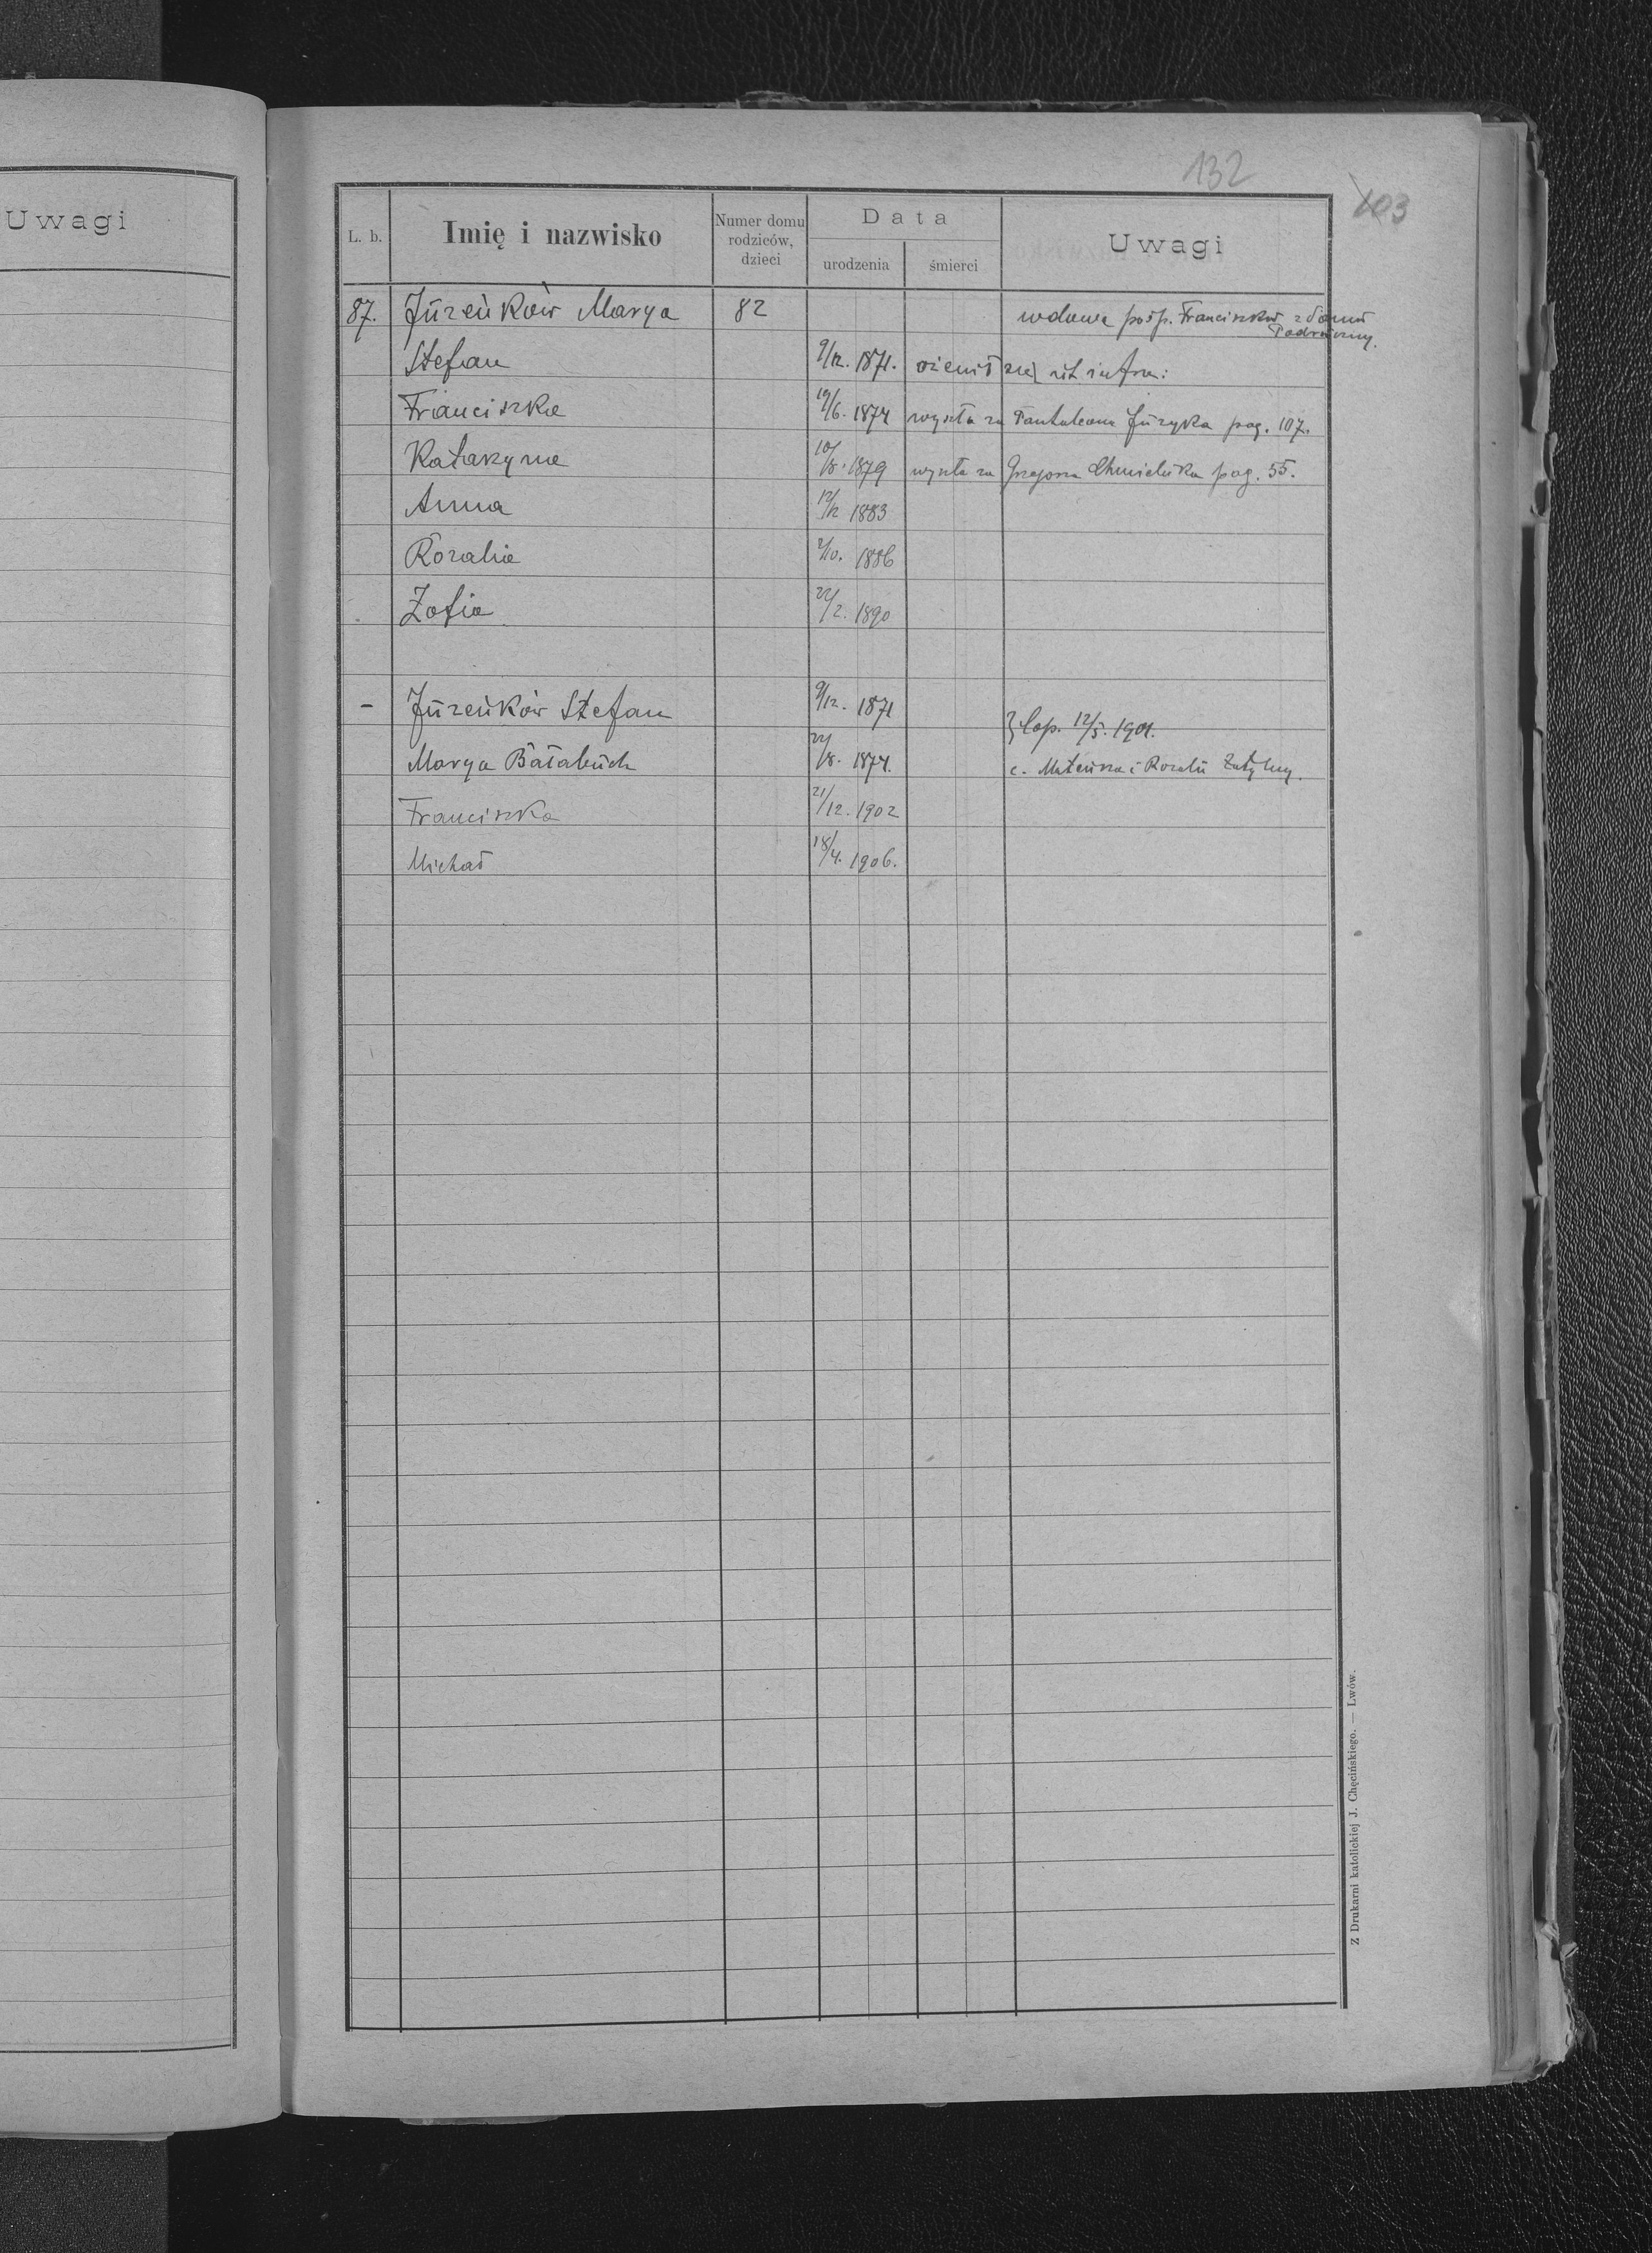 Uwagi
132
103
L. b.
Imię i nazwisko
Numer domu
rodziców,
dzieci
Data
urodzenia
śmierci
Uwagi
87. Jureńków Marya 82 wdowa po śp. Franciszku z domu
Stefan 9/12. 1871. ożenił się ut infra:
Franciszka 19/6. 1874 wyszła za Pantaleona Juzyka pag. 107.
Katarzyna 10/8. 1879 wyszła za Grzegorza Chmieluka pag. 55.
Anna 12/12 1883
Rozalia 2/10. 1886
Zofia 22/2. 1890
- Jureńków Stefan 9/12. 1871
} Cop. 12/5. 1901.
Marya Bałabuch /8. 1874. c. Mateusza i Rozalii
Franciszka 21/12. 1902
Michał 18/4. 1906.
Z Drukarni katolickiej J. Chęcińskiego. — Lwów.